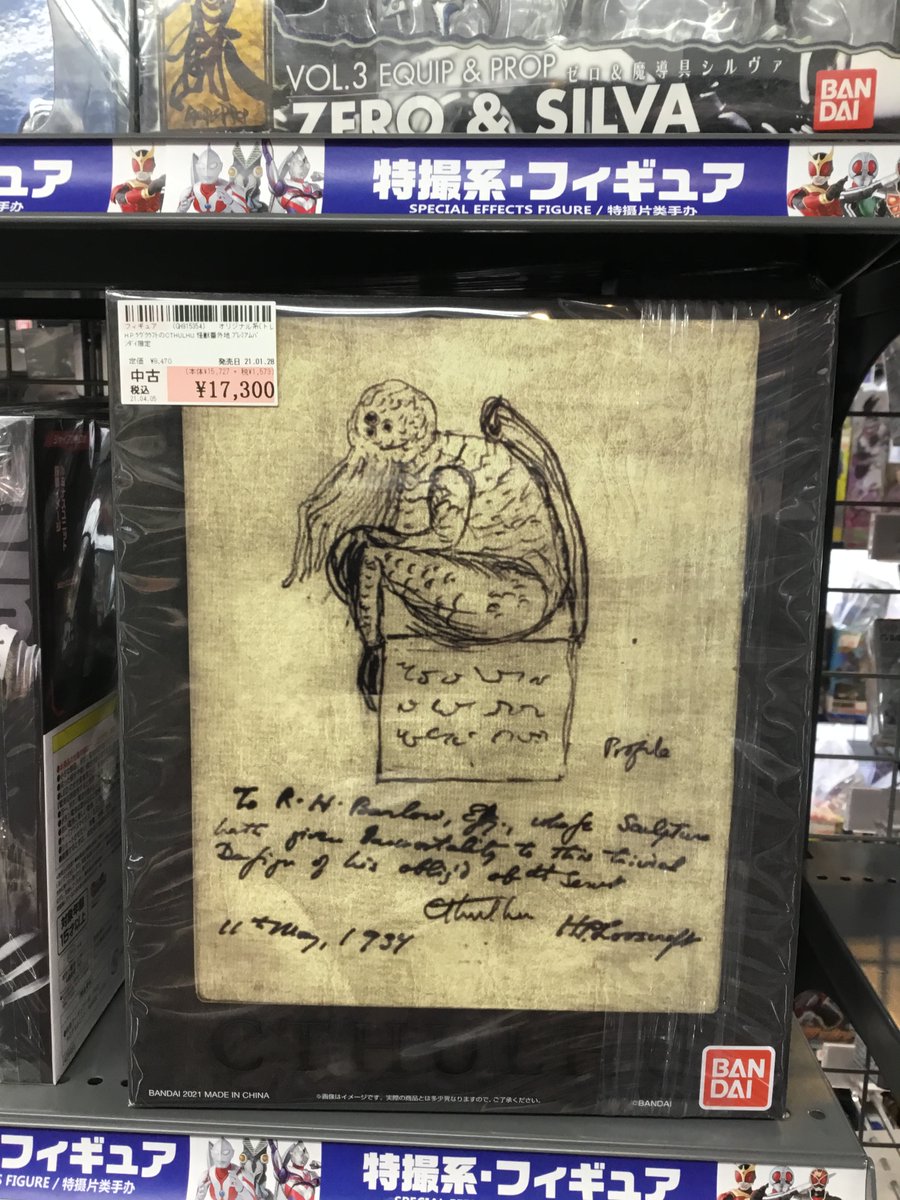 VOL.3 EQUIP & PROP ゼロ&魔導具シルヴァ
ZERO & SILVA
BAN
DAI
ュア
手办
特撮系・フィギュア
SPECIAL EFFECTS FIGURE / 特摄片类手办
フィギュア (QH915354) オリジナル系(トレ
H.P.ラヴクラフトのCTHULHU 怪獣番外地 プレミアムバ
ンダイ限定
定価 ¥9,470 発売日 21.01.28
中古 (本体¥15,727 + 税¥1,573)
税込 ¥17,300
21.04.05
Profile
To R. H. Barlow, Esq., whose Sculpture
hath given Immortality to this trivial
Design of his oblig'd obdt Servt
Cthulhu H.P. Lovecraft
11th May, 1934
対象年齢
15才以上
CTHULHU
BAN
DAI
BANDAI 2021 MADE IN CHINA
※画像はイメージです。実際の商品とは多少異なりますので、ご了承ください。
©BANDAI
フィギュア
S FIGURE / 特摄片类手办
特撮系・フィギュア
SPECIAL EFFECTS FIGURE / 特摄片类手办